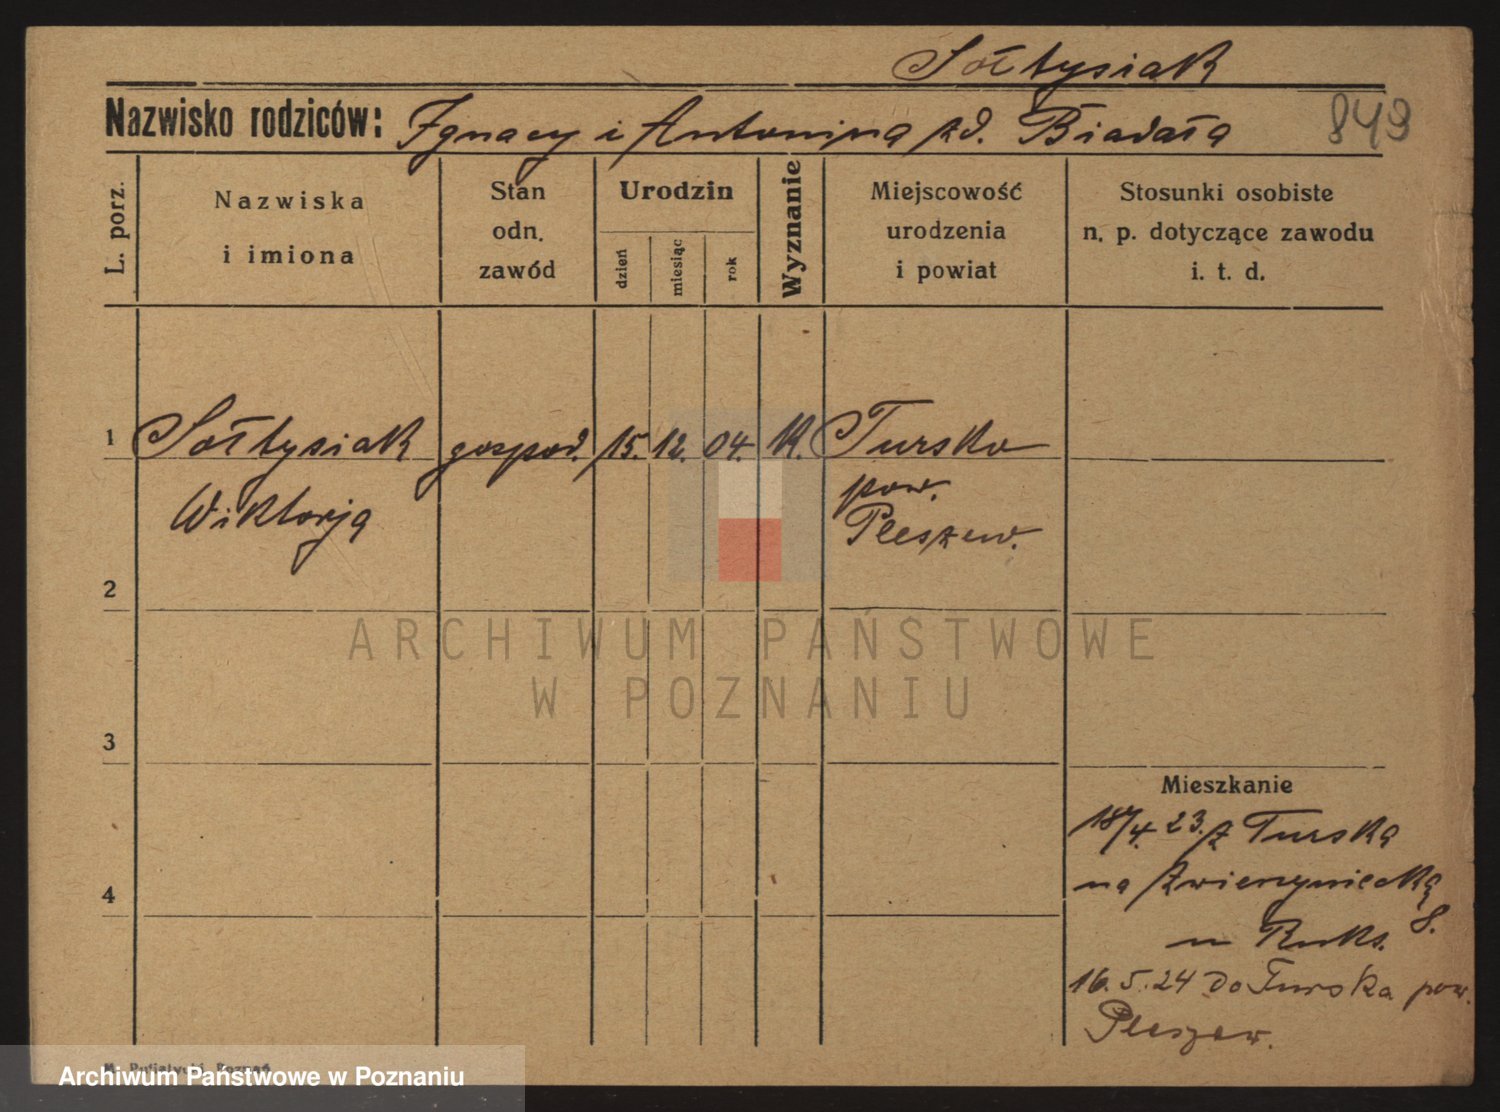 Sołtysiak
Nazwisko rodziców: Ignacy i Antonina zd. Biadała
849
L. porz.
Nazwiska
i imiona
Stan
odn.
zawód
Urodzin
dzień
miesiąc
rok
Wyznanie
Miejscowość
urodzenia
i powiat
Stosunki osobiste
n. p. dotyczące zawodu
i. t. d.
1 Sołtysiak gospod. 15. 12. 04. K. Tursko
Wiktorja
pow.
Pleszew.
2
ARCHIWUM PAŃSTWOWE
W POZNANIU
3
Mieszkanie
18/4. 23. z Turska
na Zwierzyniecką
8.
u
4
16. 5. 24 do Turska pow.
Pleszew.
Poznań
Archiwum Państwowe w Poznaniu